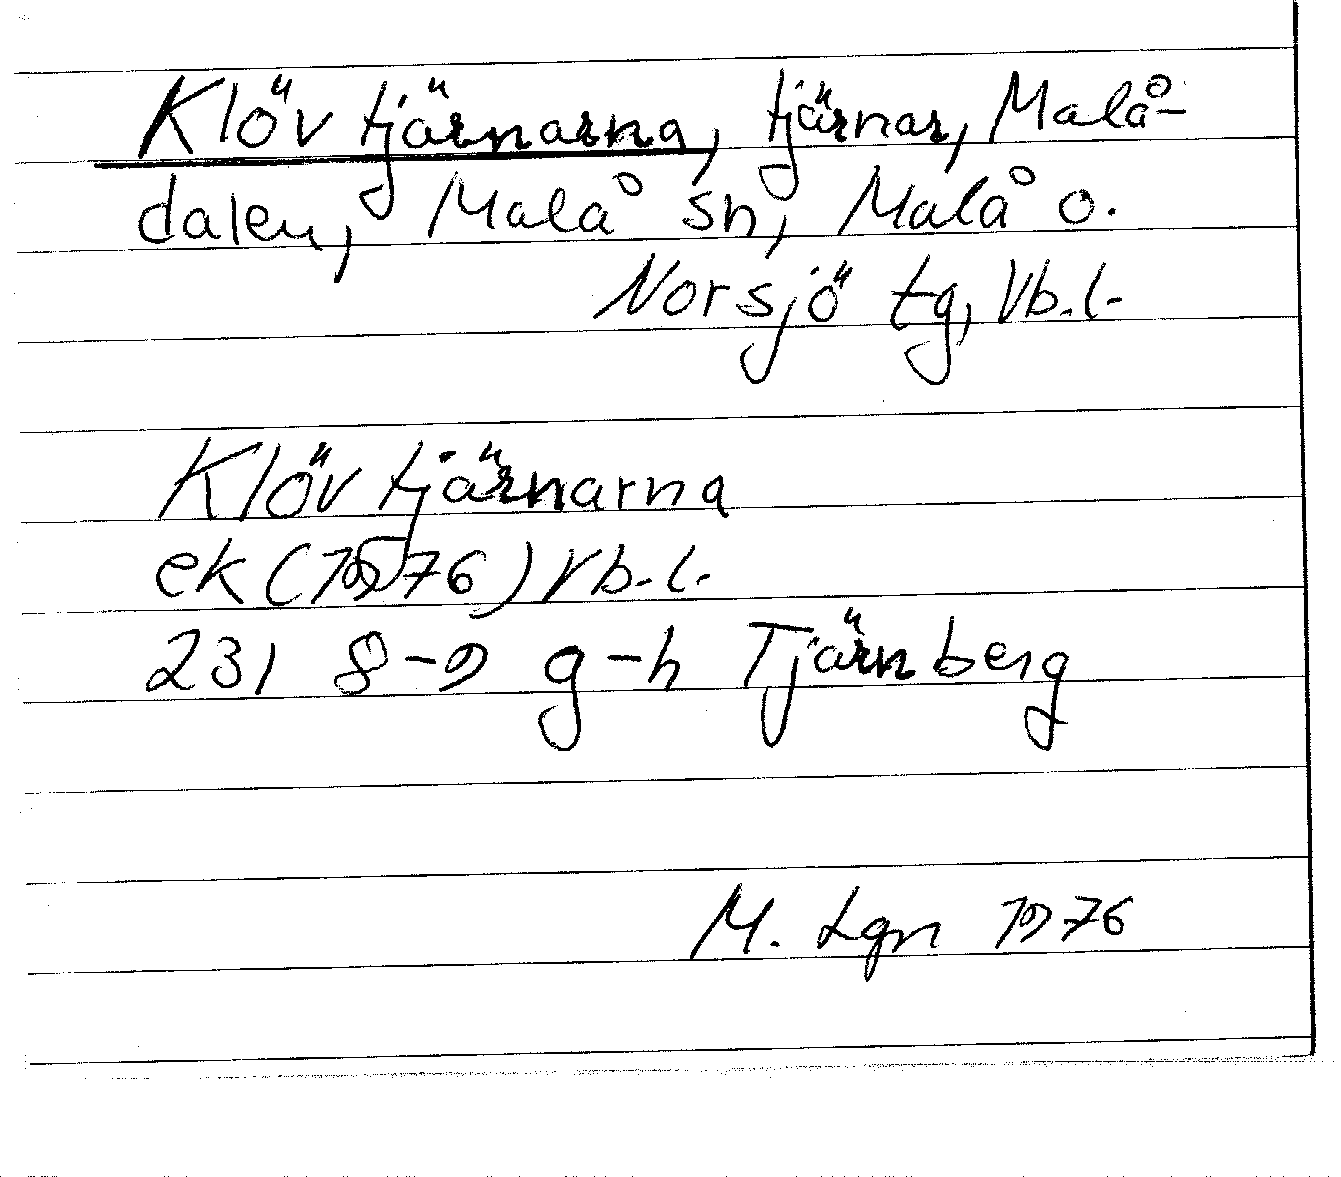 Klövtjärnarna, tjärnar, Malå-
dalen, Malå sn, Malå o.
Norsjö tg, Vb.l.
Klövtjärnarna
ek (1976) Vb.l.
231 8-9 g-h Tjärnberg
M. Lgn 1976